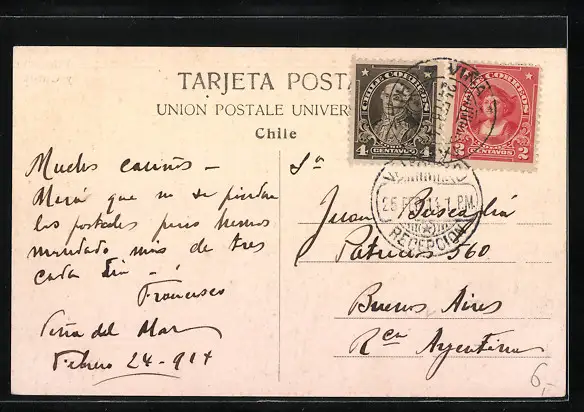 TARJETA POSTA
UNION POSTALE UNIVER
Chile
CHILE CORREOS
4 CENTAVOS 4
CORREOS
2 CENTAVOS 2
VIÑA
RECEPCION
Muchos cariños -
que no se pierdan
las postales pues hemos
mandado más de tres
cada dia -
Francisco
Viña del Mar
Febrero 24-914
Sr
Juan
560
Buenos Aires
Rca Argentina
6,-